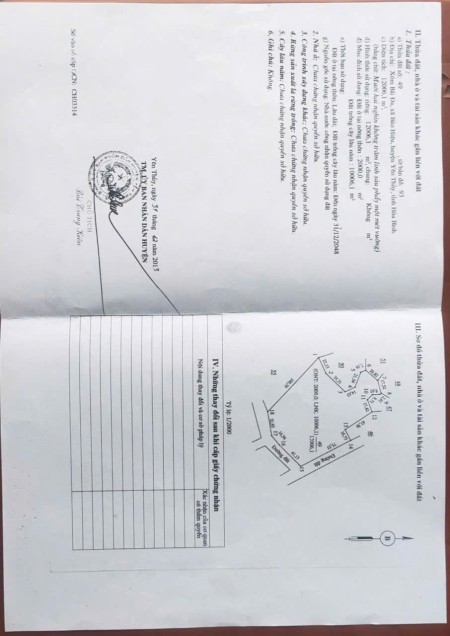 II. Thửa đất, nhà ở và tài sản khác gắn liền với đất
1. Thửa đất:
a) Thửa đất số: 49 , tờ bản đồ: 93
b) Địa chỉ: Xóm Bãi Đa, xã Bảo Hiệu, huyện Yên Thủy, tỉnh Hòa Bình
c) Diện tích: 12006,1 m²,
(bằng chữ: Mười hai nghìn không trăm linh sáu phẩy một mét vuông)
d) Hình thức sử dụng: riêng: 12006,1 m², chung: Không m²
đ) Mục đích sử dụng: Đất ở tại nông thôn: 2000,0 m²
Đất trồng cây lâu năm: 10006,1 m²
e) Thời hạn sử dụng:
Đất ở tại nông thôn: Lâu dài; Đất trồng cây lâu năm: Đến ngày 31/12/2048
g) Nguồn gốc sử dụng: Nhà nước công nhận quyền sử dụng đất
2. Nhà ở: Chưa chứng nhận quyền sở hữu.
3. Công trình xây dựng khác: Chưa chứng nhận quyền sở hữu.
4. Rừng sản xuất là rừng trồng: Chưa chứng nhận quyền sở hữu.
5. Cây lâu năm: Chưa chứng nhận quyền sở hữu.
6. Ghi chú: Không.
năm 2015
TM. ỦY BAN NHÂN DÂN HUYỆN
CHỦ TỊCH
Số vào sổ cấp GCN: CH03314
III. Sơ đồ thửa đất, nhà ở và tài sản khác gắn liền với đất
B
49
(ONT: 2000.0; LNK: 10006.1)
12006.1
Đường đất
Đường đất
Tỷ lệ: 1/2000
IV. Những thay đổi sau khi cấp giấy chứng nhận
Nội dung thay đổi và cơ sở pháp lý
Xác nhận của cơ quan
có thẩm quyền